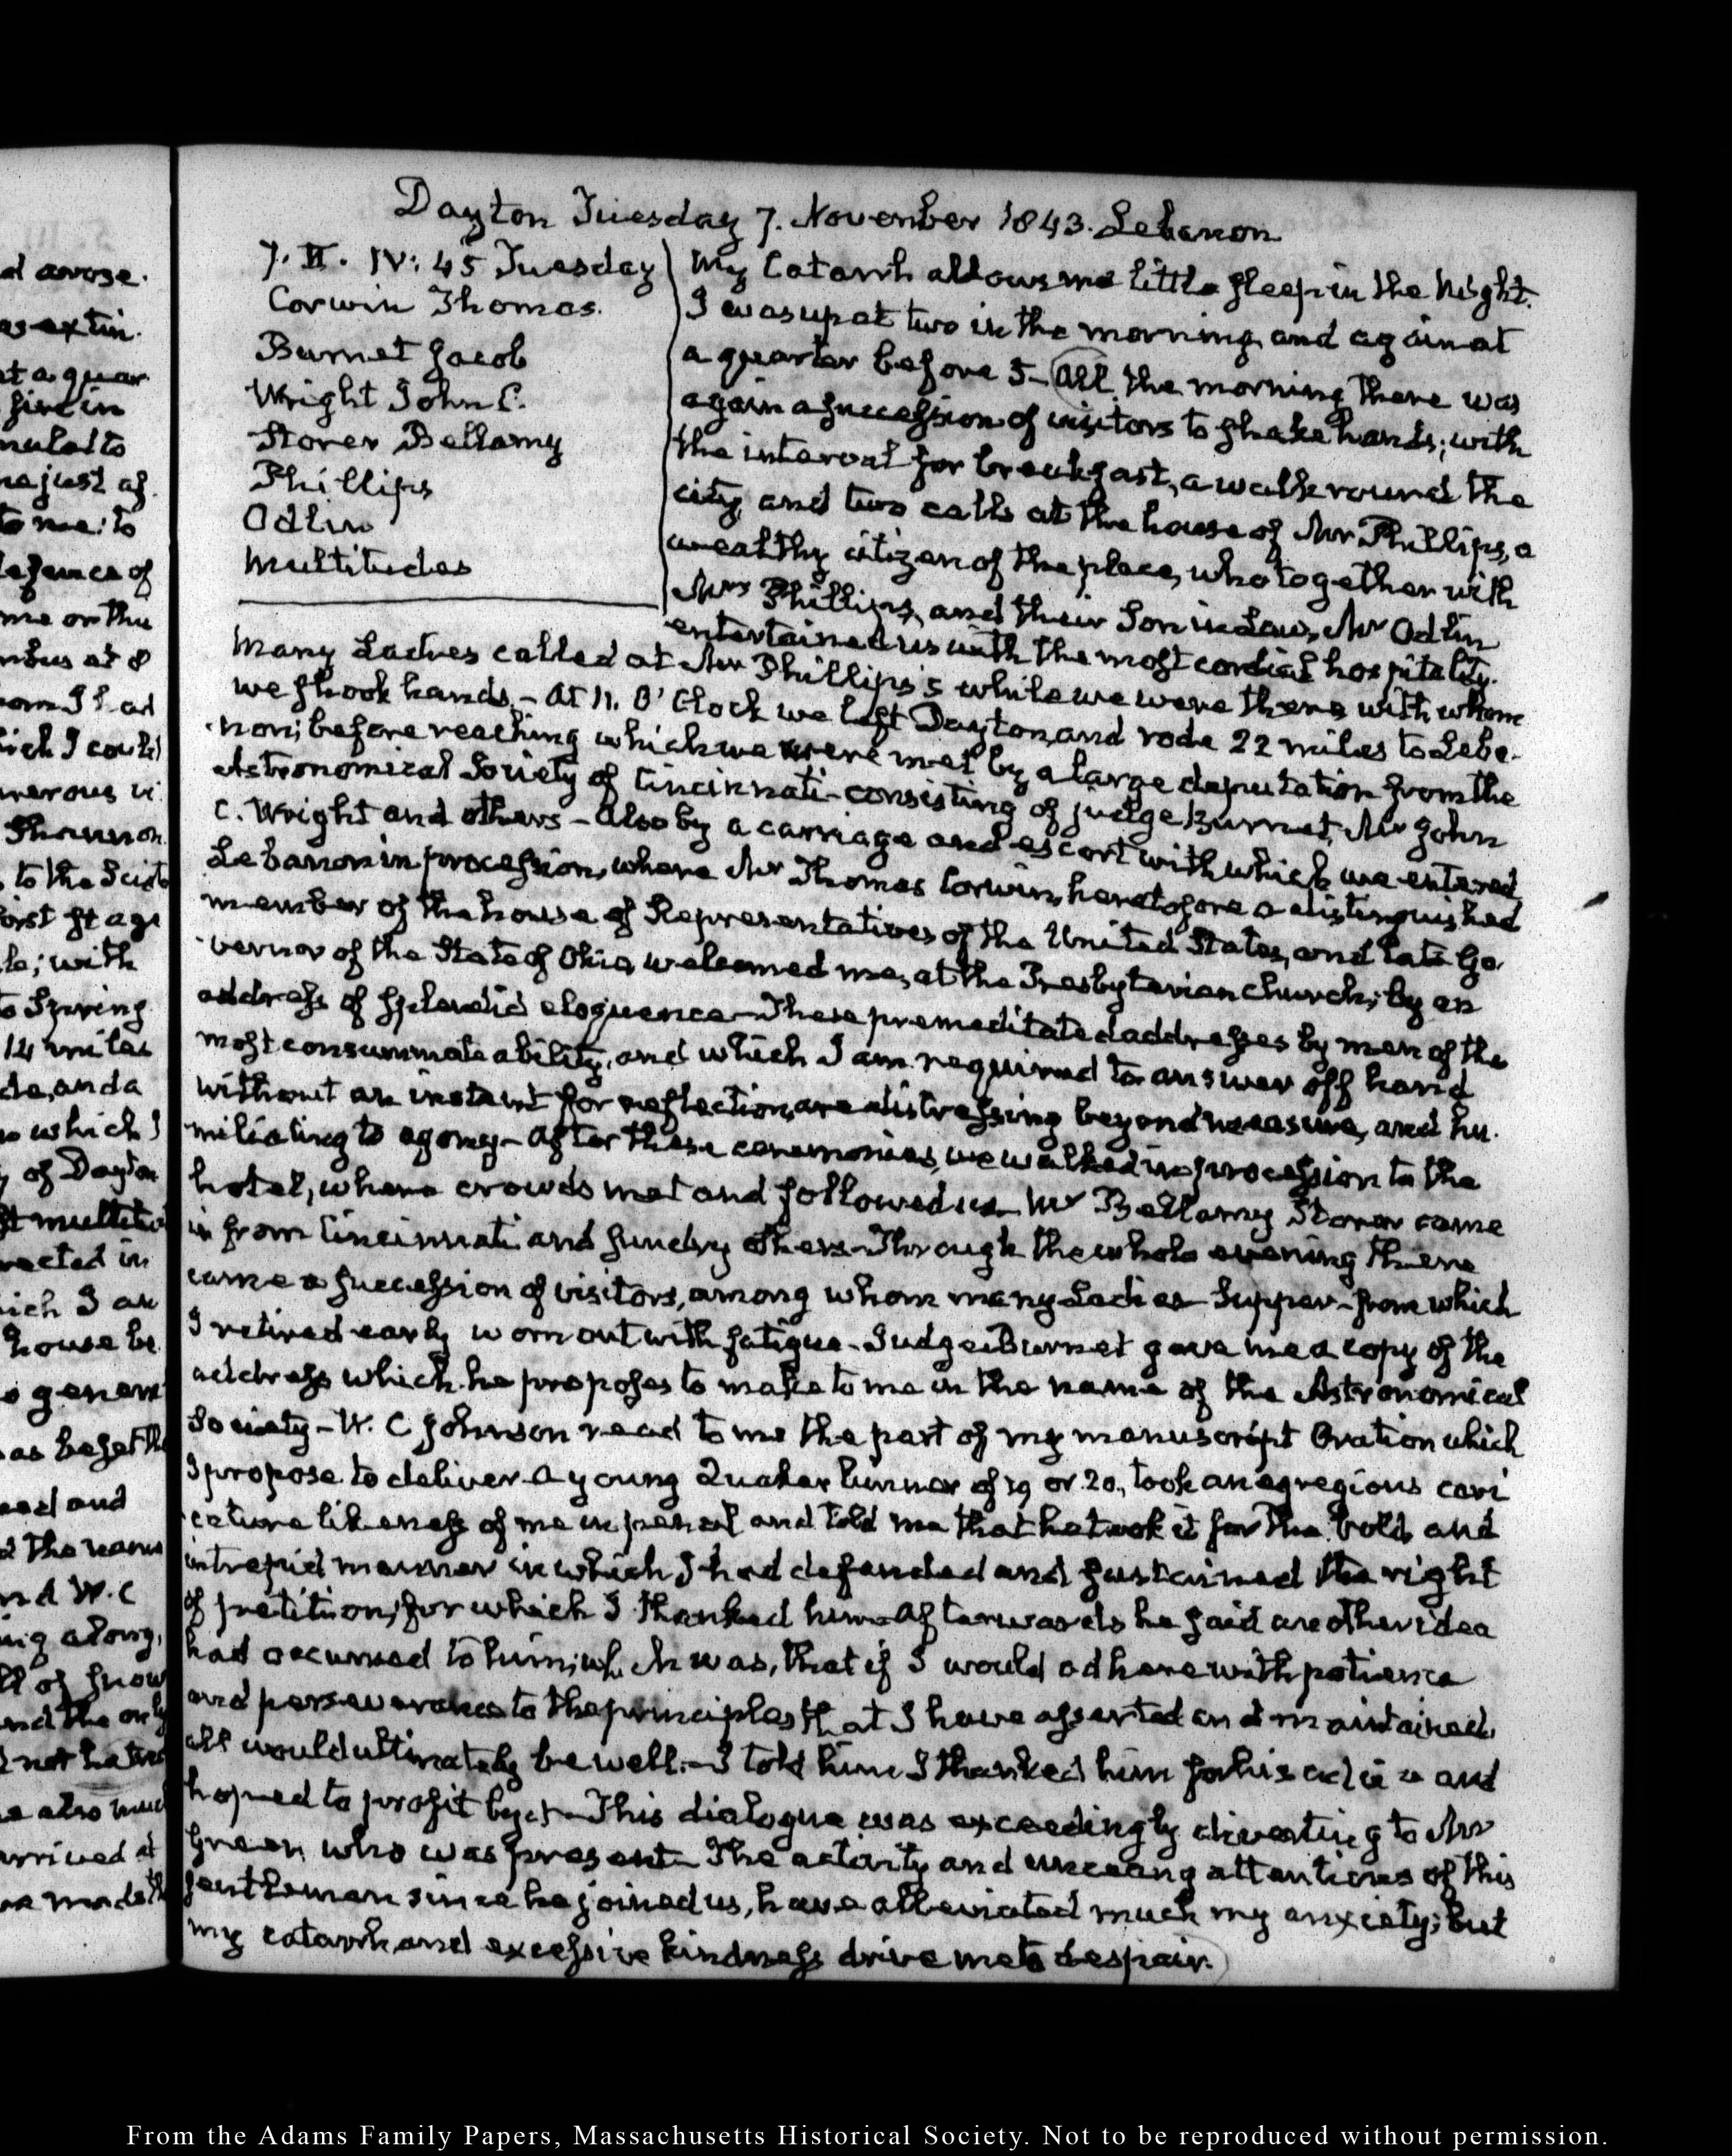 Dayton Tuesday 7. November 1843. Lebanon
7. II. IV: 45 Tuesday
Corwin Thomas.
Burnet Jacob
Wright John C.
Storer Bellamy
Phillips
Odlin
Multitudes
My Catarrh allows me little sleep in the Night.
I was up at two in the morning, and again at
a quarter before 5 — All the morning there was
again a succession of visitors to shake hands; with
the interval for breakfast, a walk round the
city, and two calls at the house of Mr Phillips, a
wealthy citizen of the place, who together with
Mrs Phillips, and their Son in Law, Mr Odlin
entertained us with the most cordial hospitality.
Many Ladies called at Mr Phillips's while we were there with whom
we shook hands — At 11. O'Clock we left Dayton, and rode 22 miles to Leba-
non; before reaching which we were met by a large deputation from the
Astronomical Society of Cincinnati — consisting of judge Burnet, Mr John
C. Wright and others — Also by a carriage and escort with which we entered
Lebanon in procession, where Mr Thomas Corwin, heretofore a distinguished
member of the house of Representatives of the United States, and late Go-
vernor of the State of Ohio, welcomed me, at the Presbyterian church; by an
address of splendid eloquence — These premeditated addresses by men of the
most consummate ability, and which I am required to answer off hand
without an instant for reflection, are distressing beyond measure, and hu-
miliating to agony — After these ceremonies, we walked in procession to the
hotel, where crowds met and followed us — Mr Bellamy Storer came
in from Cincinnati and sundry others — Through the whole evening there
came a succession of visitors, among whom many Ladies — Supper — from which
I retired early worn out with fatigue — Judge Burnet gave me a copy of the
address which he proposes to make to me in the name of the Astronomical
Society — W. C Johnson read to me the part of my manuscript Oration which
I propose to deliver — A young Quaker limner of 19 or 20, took an egregious cari
cature likeness of me in pencil and told me that he took it for the bold and
intrepid manner in which I had defended and sustained the right
of petition, for which I thanked him — Afterwards he said another idea
had occurred to him, which was, that if I would adhere with patience
and perseverance to the principles that I have asserted and maintained,
all would ultimately be well — I told him I thanked him for his advice and
hoped to profit by it — This dialogue was exceedingly diverting to Mr
Green, who was present — The activity and unceasing attentions of this
gentleman since he joined us, have alleviated much my anxiety; but
my catarrh and excessive kindness drive me to despair.
d arose.
as extin-
at a quar
five in
mulatto
me just as
to me: to
defence of
me on the
at 8
I had
which I could
numerous vi
Shannon
to the Scioto
first stage
with
to Spring
14 miles
and a
which I
of Dayton
multitu
in
which I an
house be
general
as be
and
the
and W. C
along,
of snow
and the only
not
also
arrived at
made the
From the Adams Family Papers, Massachusetts Historical Society. Not to be reproduced without permission.